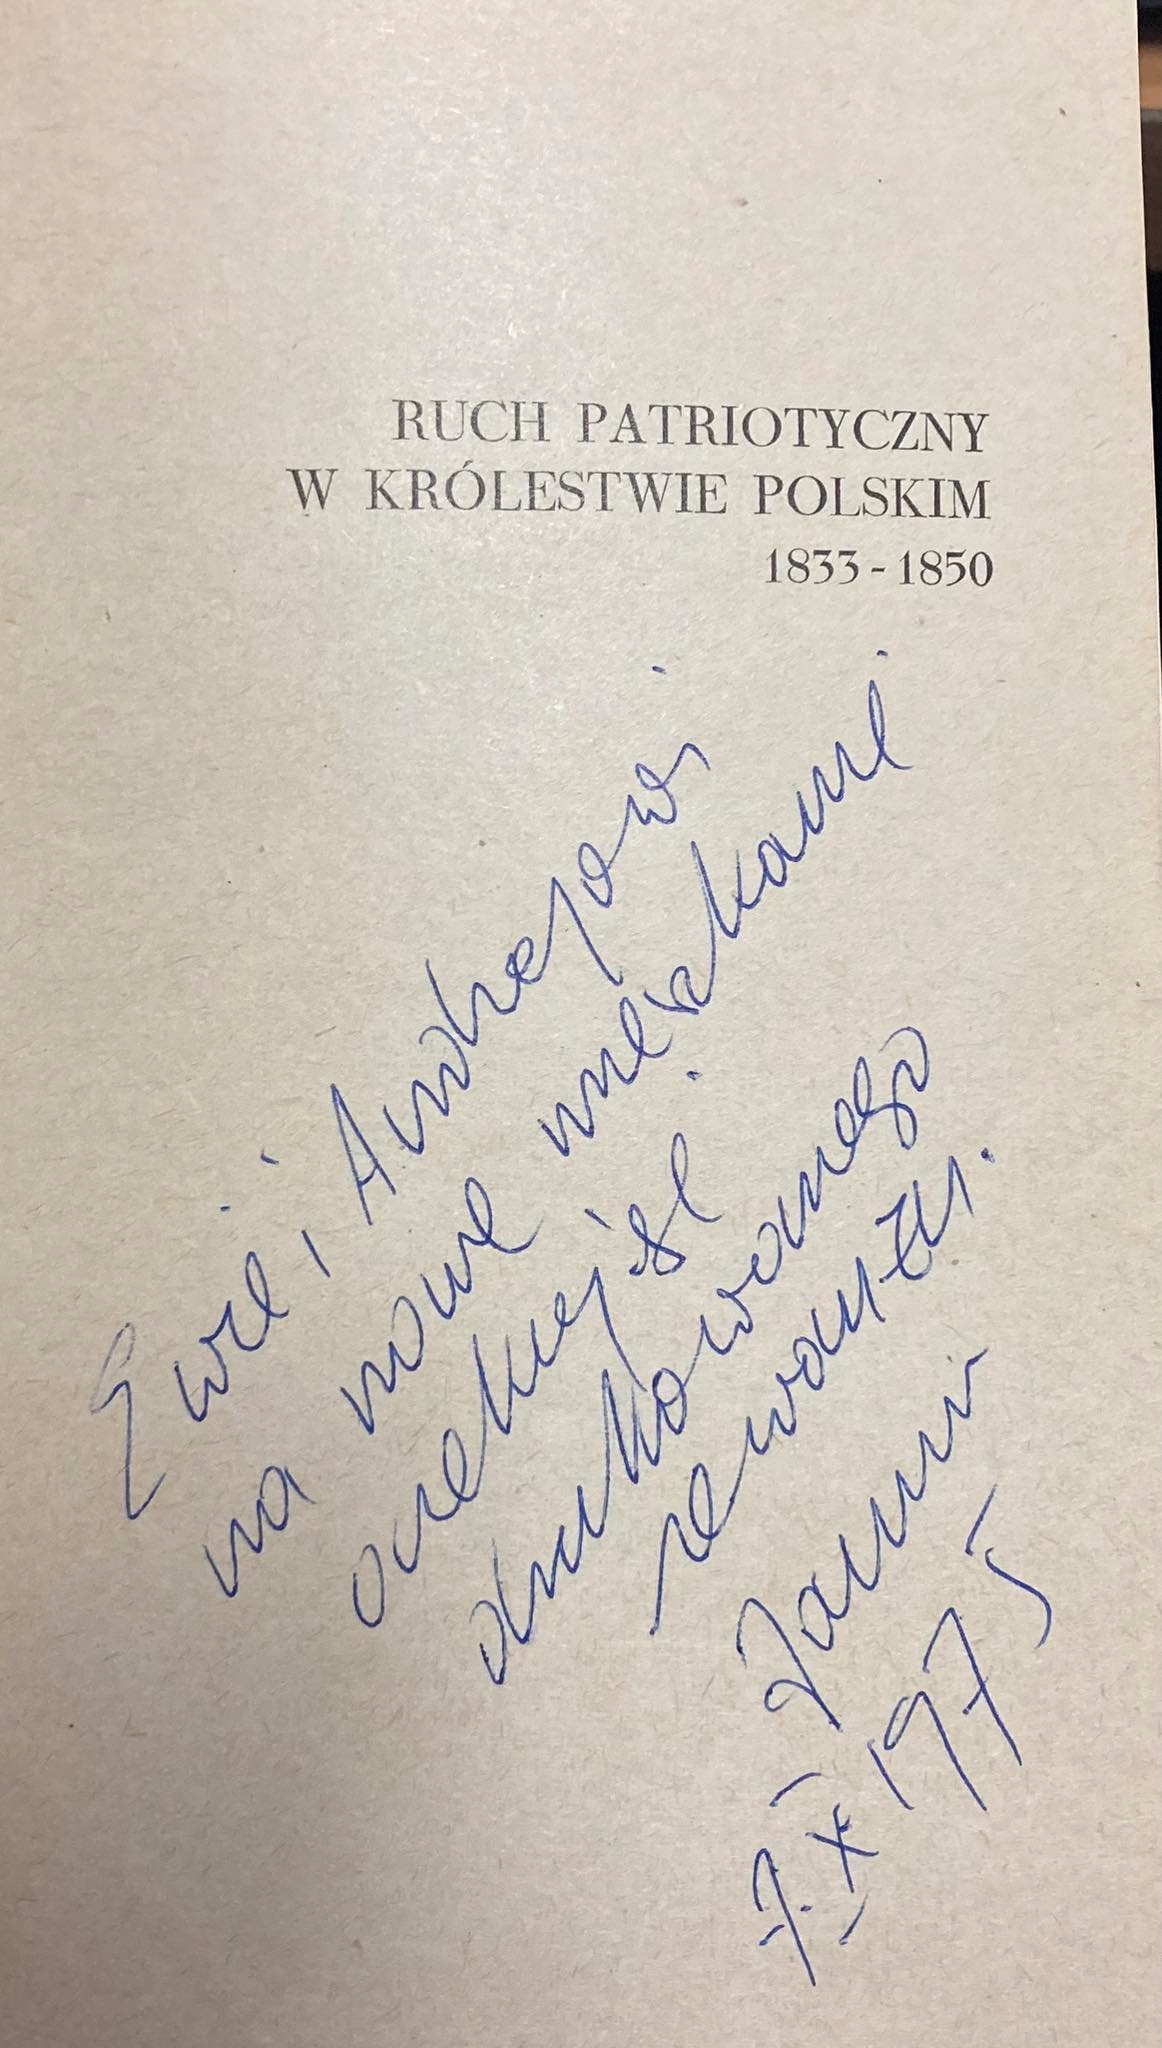 RUCH PATRIOTYCZNY
W KRÓLESTWIE POLSKIM
1833-1850
Ewie i Andrzejowi
na nowe mieszkanie
oczekując
drukowanego
rewanżu.
7.X 1975